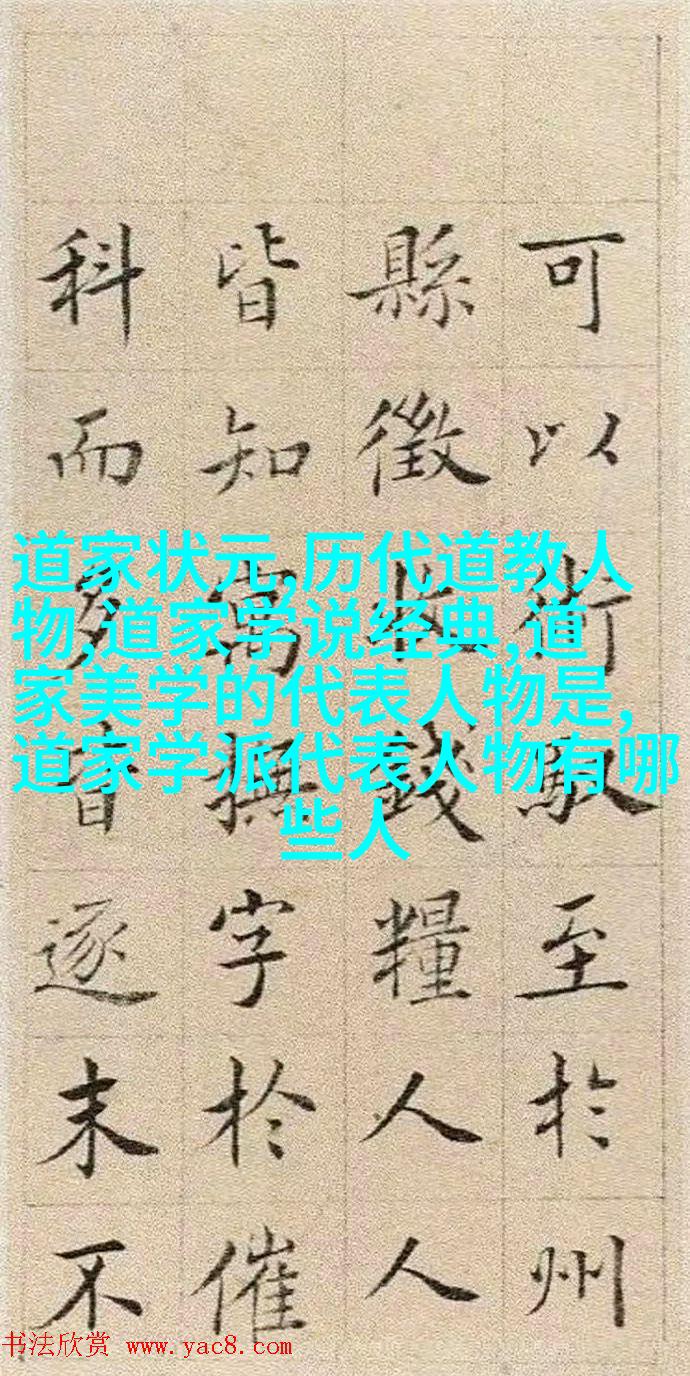 可以術馭至於州
縣徵收錢糧人人
皆知寓撫字於催
科而多皆逐末不
道家状元,历代道教人
物,道家学说经典,道
家美学的代表人物是,
道家学派代表人物有哪
些人
书法欣赏 www.yac8.com